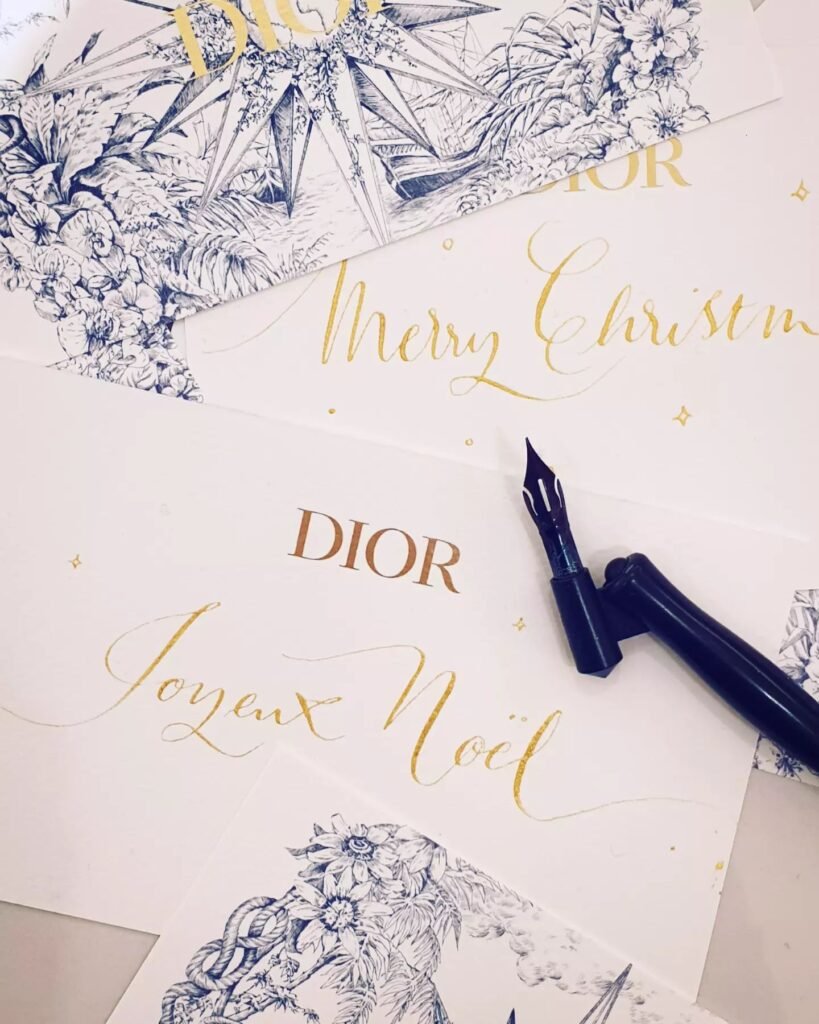 DIOR
DIOR
Merry Christm
DIOR
Joyeux Noël